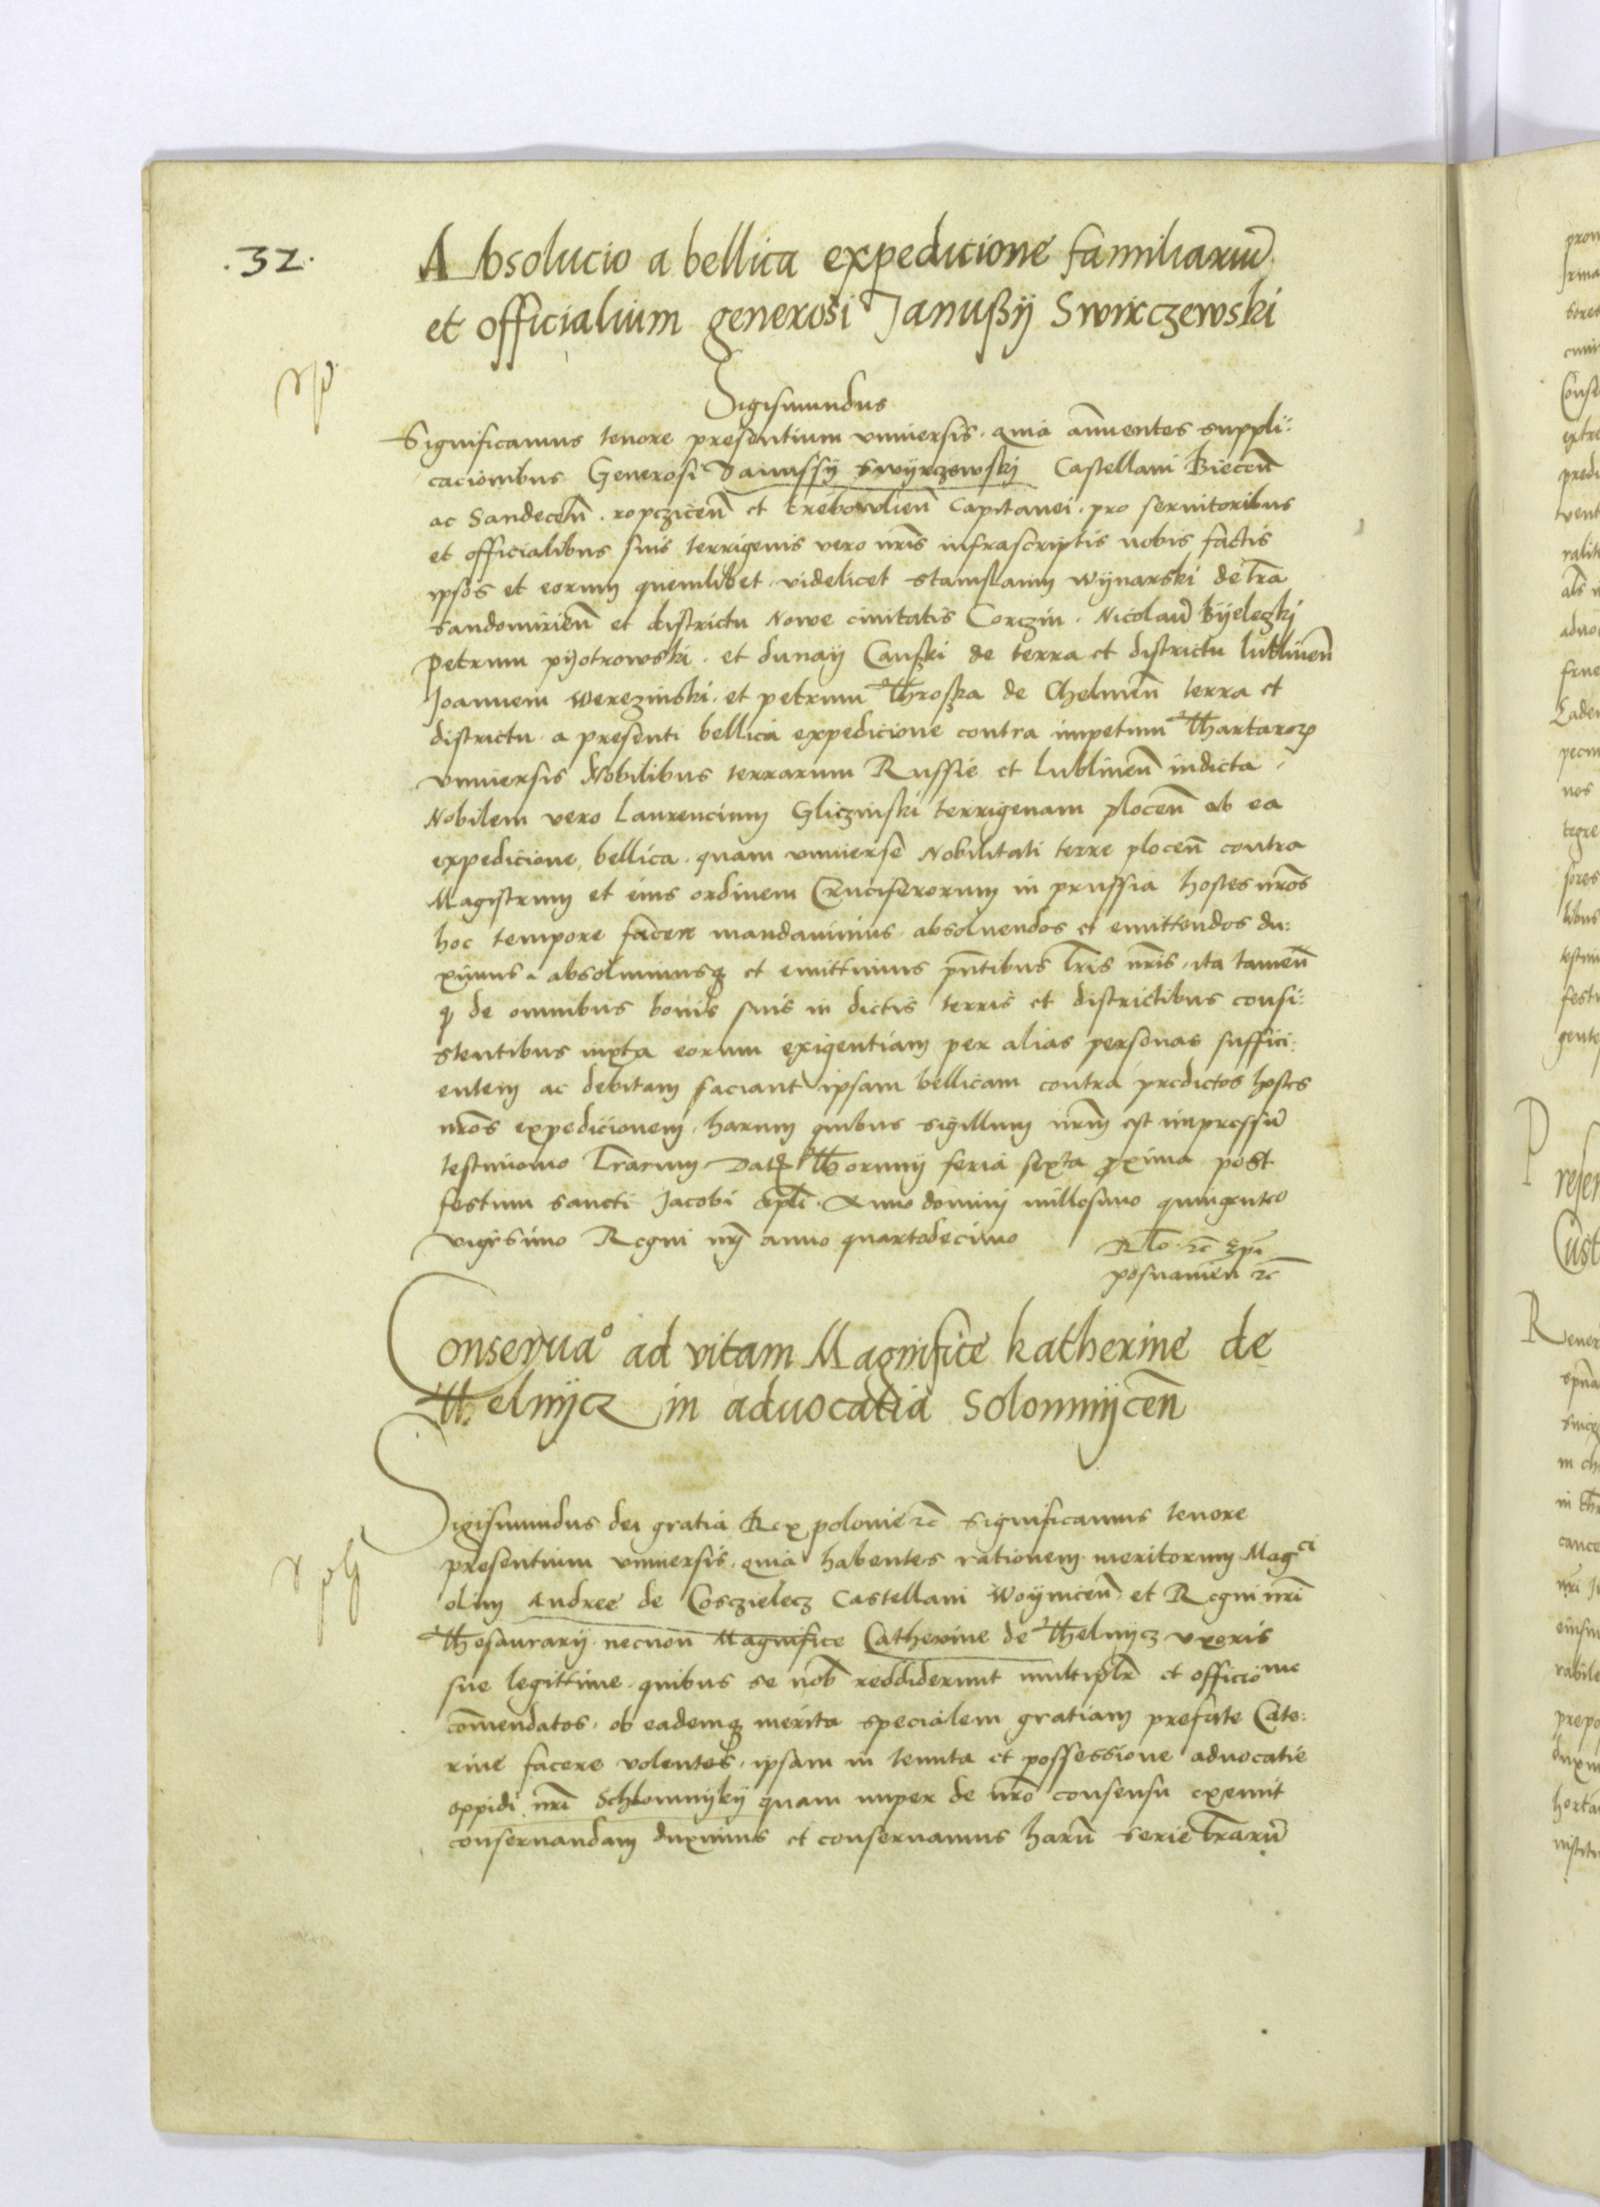 .32.
Absolucio a bellica expedicione familiariū
et officialium generosi Janußij Swirczewski
Sigismundus
Significamus tenore presentium vniuersis. quia annuentes suppli:
cacionibus Generosi Janussij Swijrczewskij Castellani Biecen̄
ac Sandecen̄. ropczicen̄ et trebowlien̄ Capitanei. pro seruitoribus
et officialibus suis terrigenis vero nr̄is infrascriptis nobis factis
ipsos et eorum quemlibet. videlicet stanislaum wijnarski de tr̄a
Sandomirien̄ et districtu Nowe ciuitatis Corczin. Nicolaū Byelegki
petrum pijotrowski. et dunaij Canski de terra et districtu lublinen̄
Joannem werezinski. et petrum Throska de Chelmen̄ terra et
districtu. a presenti bellica expedicione contra impetum Thartarorꝝ
vniuersis Nobilibus terrarum Russie et lublinen̄ indicta.
Nobilem vero Laurencium Gliczinski terrigenam plocen̄ ab ea
expedicione bellica. quam vniuerse Nobilitati terre plocen̄ contra
Magistrum et eius ordinem Cruciferorum in prussia hostes nr̄os
hoc tempore facere mandauimus. absoluendos et emittendos du:
ximus. absoluimusqꝫ et emittimus pn̄tibus lr̄is nr̄is. ita tamen
ꝙ de omnibus bonis suis in dictis terris et districtibus consi:
stentibus iuxta eorum exigentiam per alias personas suffici:
entem ac debitam faciant ipsam bellicam contra predictos hostes
nr̄os expedicionem. harum quibus sigillum nr̄m est impressū
testimonio lr̄arum Datꝫ Thorunij feria sexta proxima post
festum sancti Jacobi apl̄i. Anno domini millesimo quingento
vigesimo Regni nr̄i anno quartodecimo
Rl̄o. ꝛc Ep̄i
posnanien̄ ꝛc
Conseruaº ad vitam Magnifice katherine de
Thelnijcz in aduocatia Solomnijcen̄
Sigismundus dei gratia Rex polonie ꝛc significamus tenore
presentium vniuersis. quia habentes rationem meritorum Magci
olim Andree de Cosczielecz Castellani Woijnicen̄ et Regni nr̄i
Thesaurarij. necnon Magnifice Catherine de Thelnijcz vxoris
sue legittime. quibus se nob̄ reddiderunt multiplr̄ et officiome
com̄endatos. ob eademqꝫ merita specialem gratiam prefate Cate:
rine facere volentes. ipsam in tenuta et possessione aduocatie
oppidi nr̄i Schlomnijkij quam nuper de nr̄o consensu exemit
conseruandam duximus et conseruamus harū serie lr̄arū